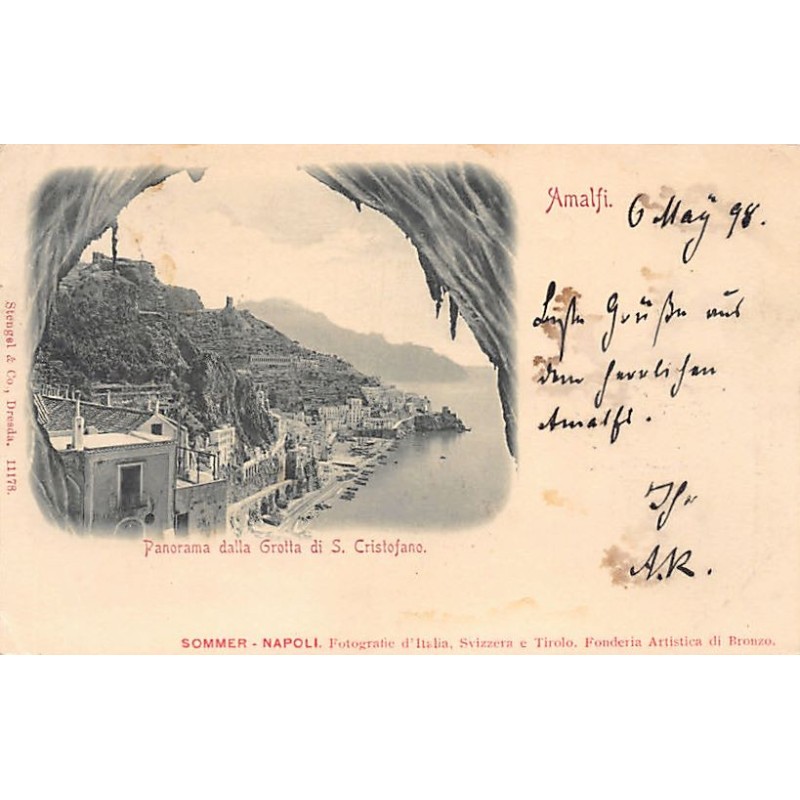 Amalfi.
6 Maÿ 98.
Beste Grüße aus
dem herrlichen
Amalfi.
Ihr
A.K.
Panorama dalla Grotta di S. Cristofano.
Stengel & Co., Dresda. 11178.
SOMMER - NAPOLI. Fotografie d'Italia, Svizzera e Tirolo. Fonderia Artistica di Bronzo.